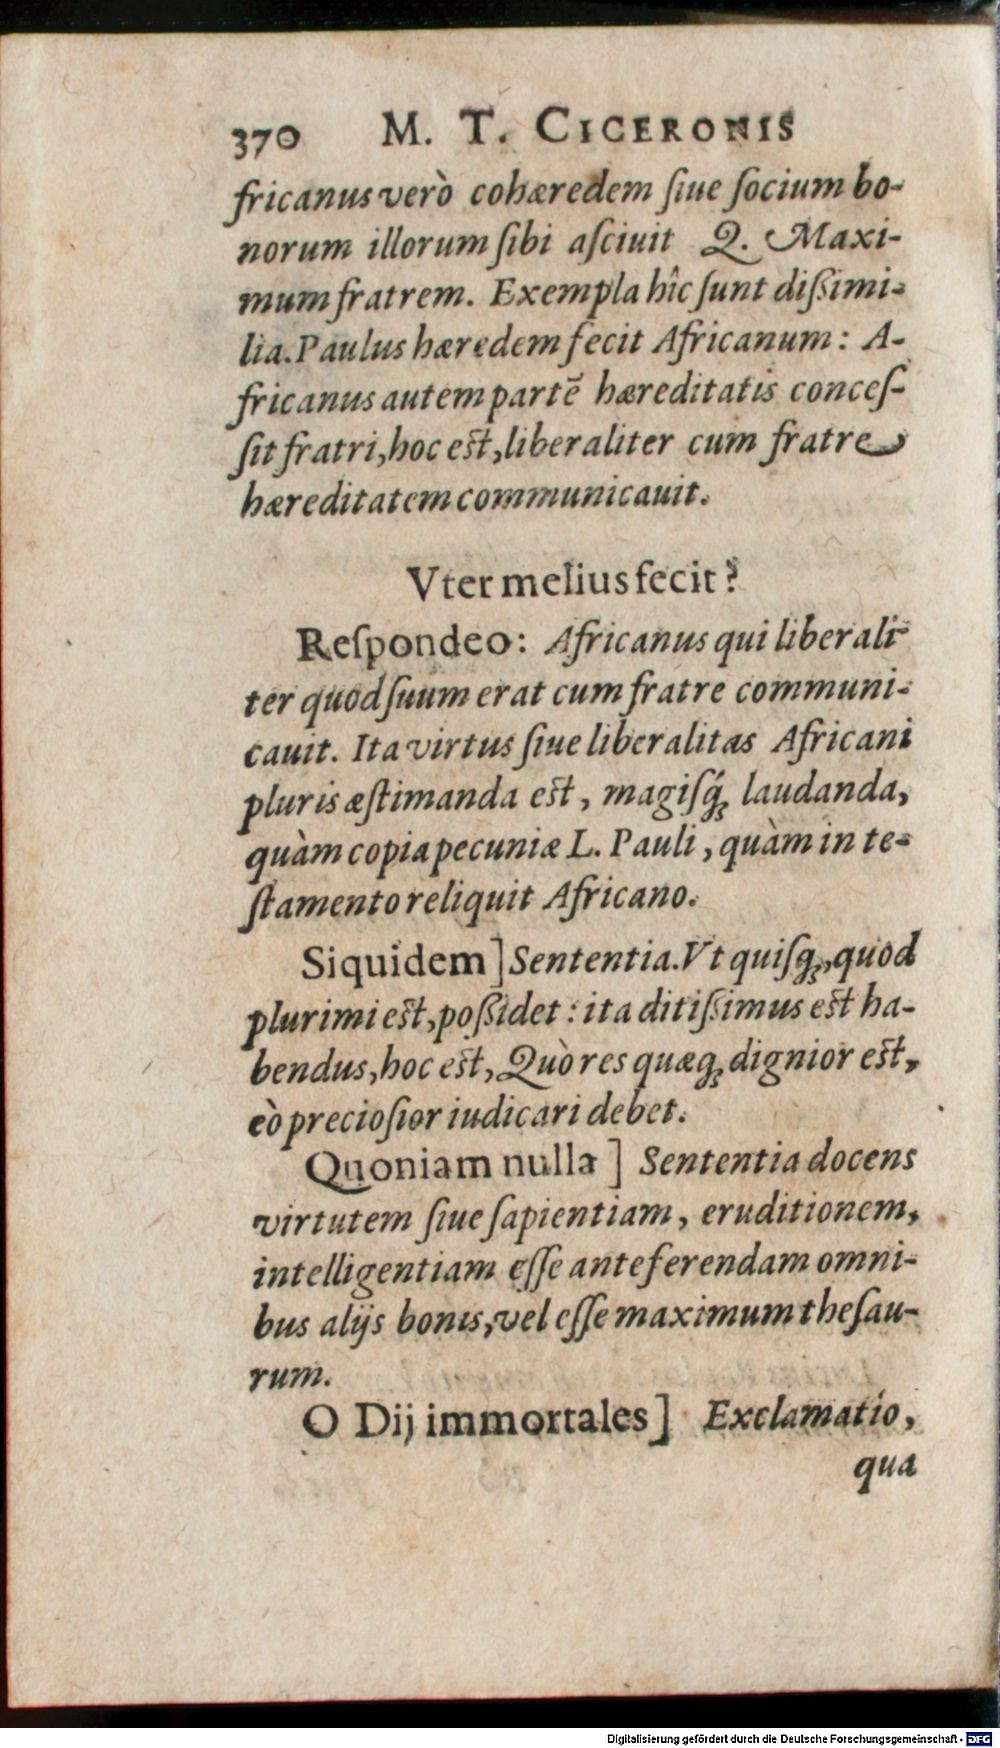 370 M. T. CICERONIS
fricanus verò cohæredem ſiue ſocium bo-
norum illorum ſibi aſciuit Q. Maxi-
mum fratrem. Exempla hîc ſunt diſſimi-
lia. Paulus hæredem fecit Africanum: A-
fricanus autem partē hæreditatis conceſ-
ſit fratri, hoc eſt, liberaliter cum fratre
hæreditatem communicauit.
Vter melius fecit?
Reſpondeo: Africanus qui liberali-
ter quod ſuum erat cum fratre communi-
cauit. Ita virtus ſiue liberalitas Africani
pluris æſtimanda eſt, magiſq́; laudanda,
quàm copia pecuniæ L. Pauli, quàm in te-
ſtamento reliquit Africano.
Siquidem] Sententia. Vt quiſq;, quod
plurimi eſt, poſſidet: ita ditiſſimus eſt ha-
bendus, hoc eſt, Quò res quæq; dignior eſt,
eò precioſior iudicari debet.
Quoniam nulla] Sententia docens
virtutem ſiue ſapientiam, eruditionem,
intelligentiam eſſe anteferendam omni-
bus alijs bonis, vel eſſe maximum theſau-
rum.
O Dij immortales] Exclamatio,
qua
Digitalisierung gefördert durch die Deutsche Forschungsgemeinschaft - DFG